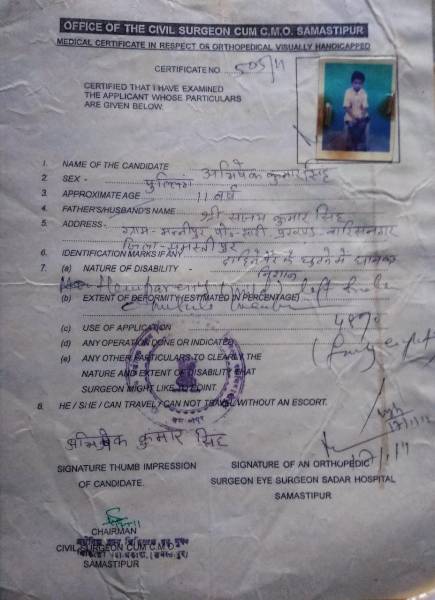 OFFICE OF THE CIVIL SURGEON CUM C.M.O. SAMASTIPUR
MEDICAL CERTIFICATE IN RESPECT OR ORTHOPEDICAL VISUALLY HANDICAPPED
CERTIFICATE NO. 505/11
CERTIFIED THAT I HAVE EXAMINED
THE APPLICANT WHOSE PARTICULARS
ARE GIVEN BELOW:
1. NAME OF THE CANDIDATE अभिषेक कुमार सिंह
2. SEX - पुलिंग
3. APPROXIMATE AGE 11 वर्ष
4. FATHER'S/HUSBAND'S NAME श्री संजय कुमार सिंह
5. ADDRESS - ग्राम- वारिसनगर
जिला- समस्तीपुर
6. IDENTIFICATION MARKS IF ANY दाहिने पैर के घुटने में
निशान
7. (a) NATURE OF DISABILITY -
(mild) left
(b) EXTENT OF DEFORMITY (ESTIMATED IN PERCENTAGE)
48%
(c) USE OF APPLICATION
(Forty eight)
(d) ANY OPERATION DONE OR INDICATED
(e) ANY OTHER PARTICULARS TO CLEARLY THE
NATURE AND EXTENT OF DISABILITY THAT
SURGEON MIGHT LIKE TO POINT.
8. HE / SHE / CAN TRAVEL / CAN NOT TRAVEL WITHOUT AN ESCORT.
अभिषेक कुमार सिंह
SIGNATURE THUMB IMPRESSION
OF CANDIDATE.
SIGNATURE OF AN ORTHOPEDIC
SURGEON EYE SURGEON SADAR HOSPITAL
SAMASTIPUR
CHAIRMAN
CIVIL SURGEON CUM C.M.O.
SAMASTIPUR